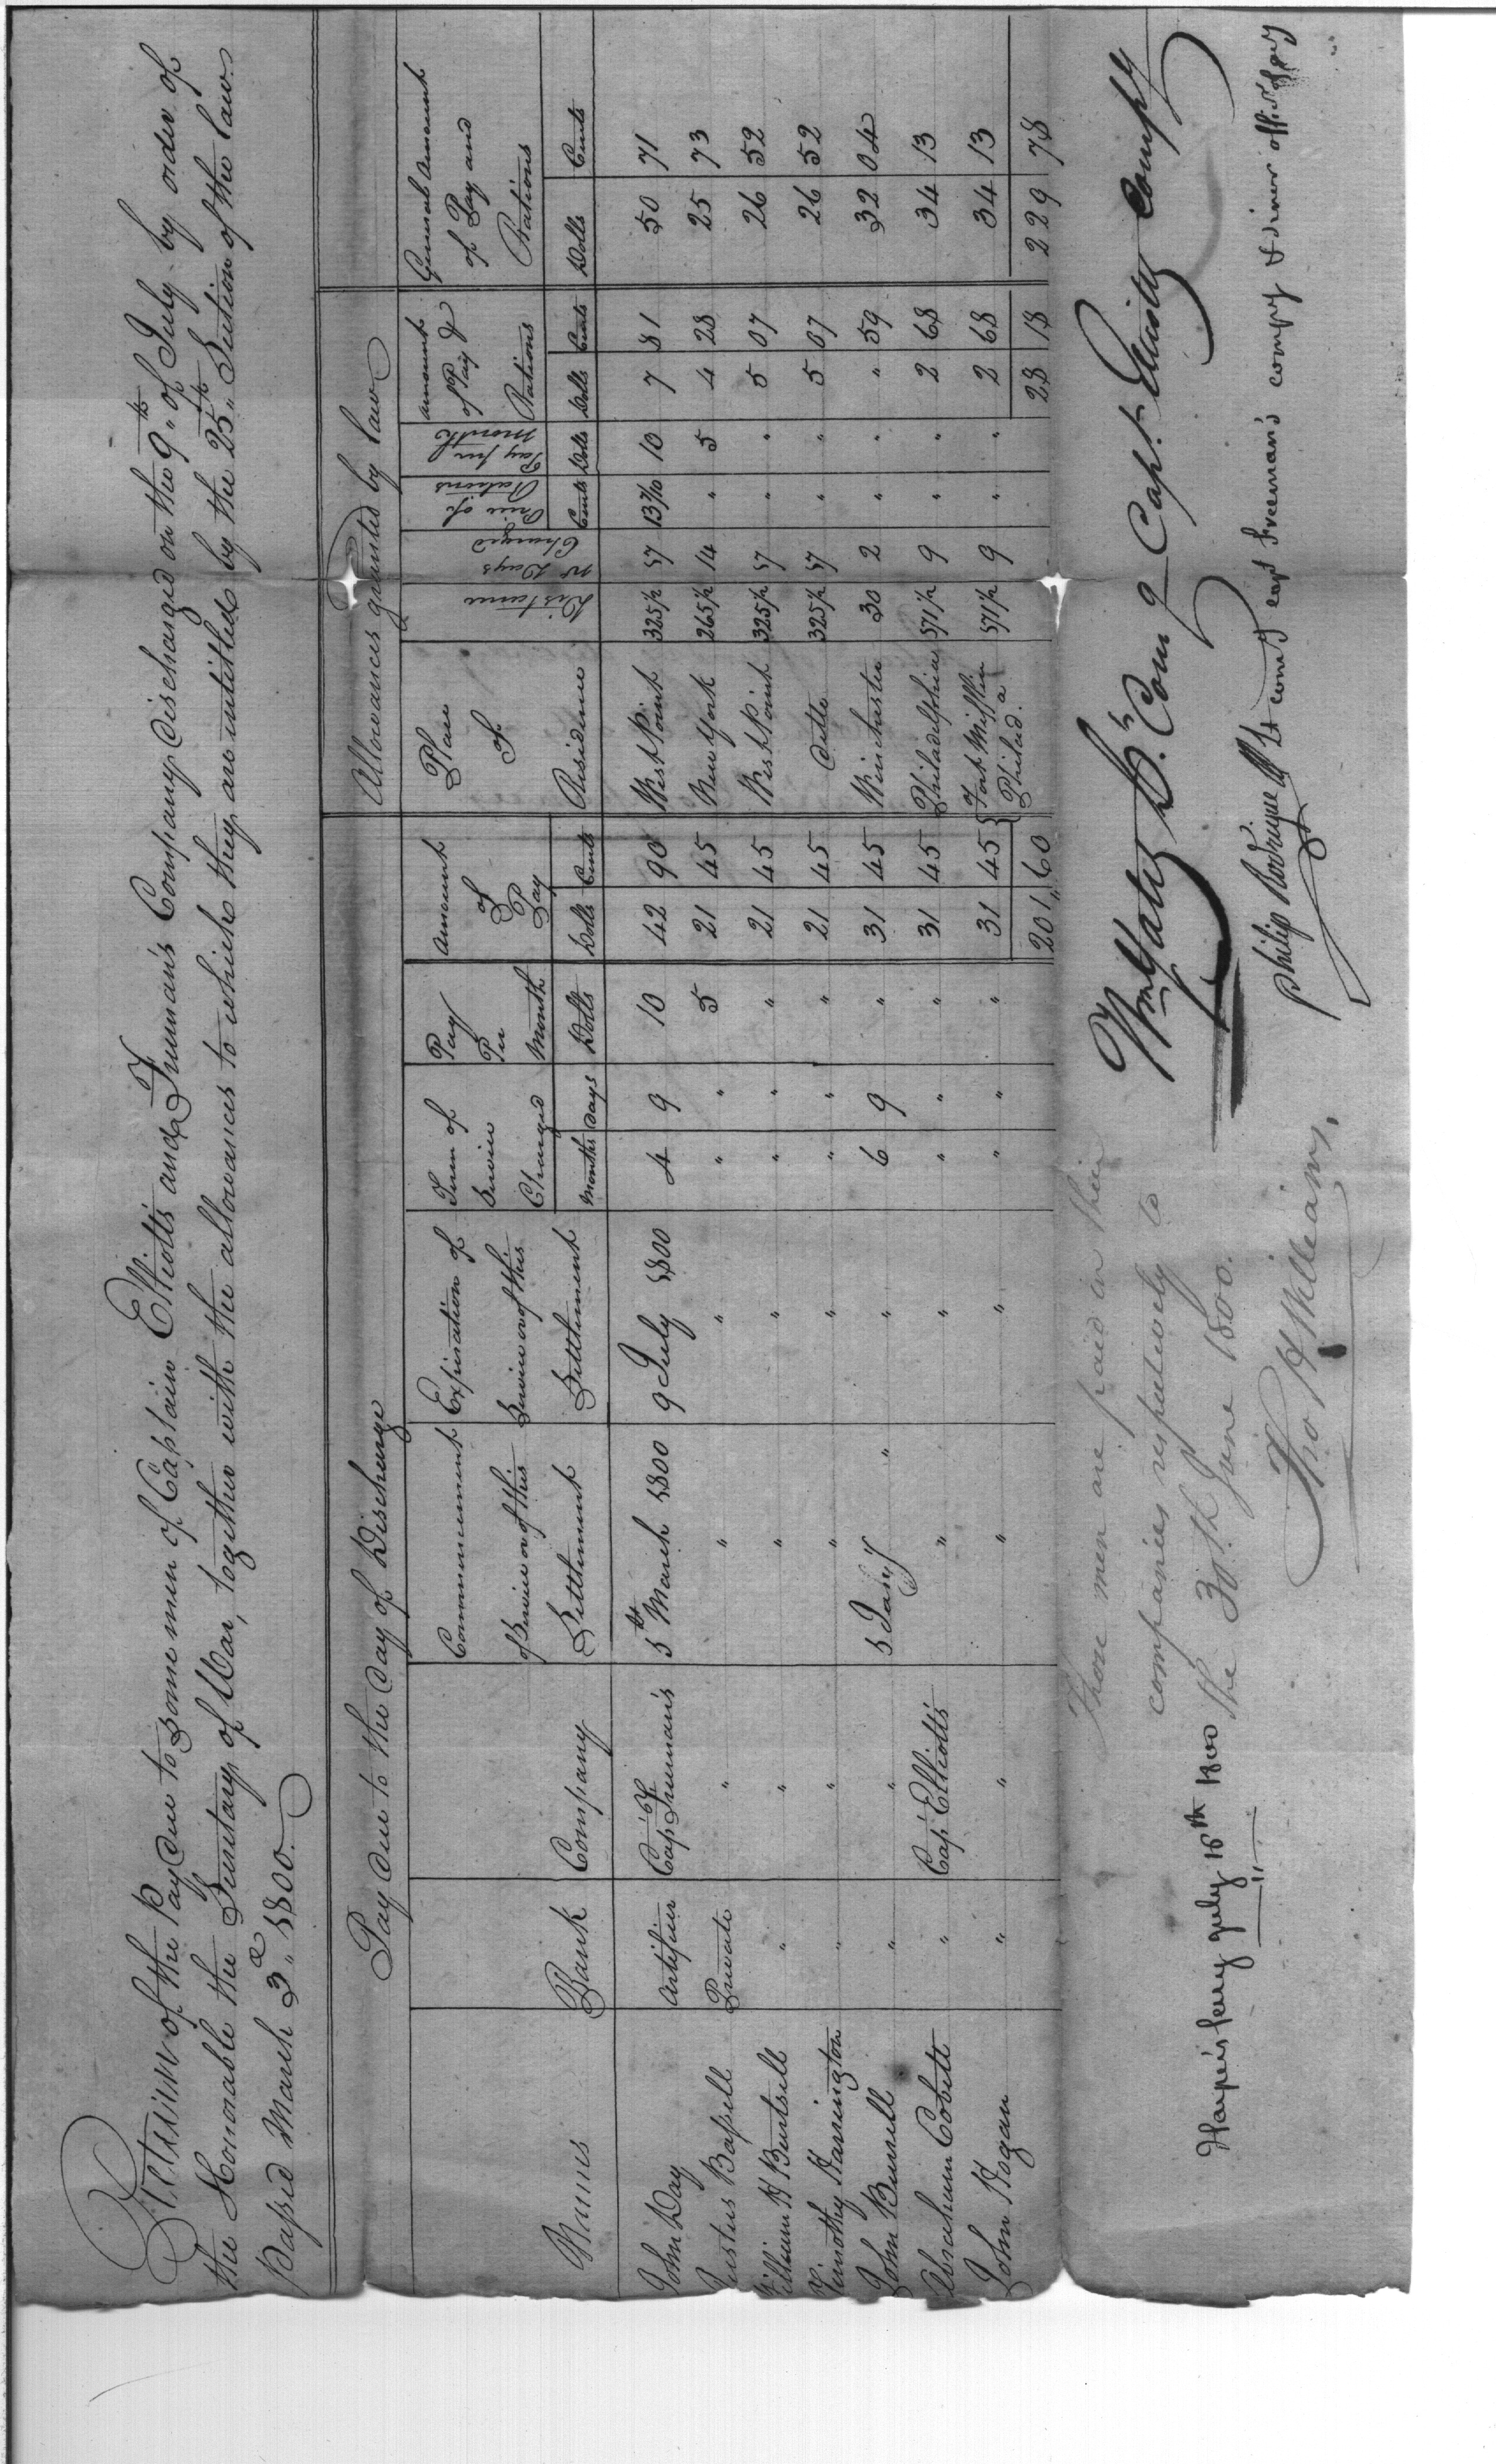 Return of the Pay due to some men of Captain Elliotts and Freeman's Company discharged on the 9th of July by order of
the Honorable the Secretary of War, together with the allowances to which they are intitled by the 25th Section of the law
passed March 3d 1800.
Pay due to the day of Discharge
Allowances granted by law
Names Rank Company Commencement of Service or of this Settlement Expiration of Service or of this Settlement Term of Service Charged Pay Per Month Amount of Pay Place of Residence Distance No Days Charged Price of Rations Pay per month Amount of Pay & Rations General Amount of Pay and Rations
Months days Dolls Dolls Cents Cents Dolls Dolls Cents Dolls Cents
John Day Artificer Capt Freeman's 5th March 1800 9 July 1800 4 9 10 42 90 West Point 325 1/2 17 13 7/10 10 7 81 50 71
Justus Bassell Private " " " " " 5 21 45 New York 265 1/2 14 " 5 4 28 25 73
William H Burtsell " " " " " " " 21 45 West Point 325 1/2 17 " " 5 07 26 52
Timothy Harrington " " " " " " " 21 45 ditto 325 1/2 17 " " 5 07 26 52
John Burrell " " 5 Jany " " 6 9 " 31 45 Winchester 30 2 " " " 59 32 04
Abraham Cobett " Cap Elliotts " " " " " 31 45 Philadelphia 171 1/2 9 " " 2 68 34 13
John Hogan " " " " " " " 31 45 Fort Mifflin a Philad. 171 1/2 9 " " 2 68 34 13
201 " 60 28 18 229 78
Those men are paid in their
companies respectively to
the 30th June 1800.
Tho H Williams,
Harper's ferry july 16th 1800
Wm Yates Lt. Com g Capt. Elliotts Compy
Philip Rodrigue Lt comg capt freeman's compy